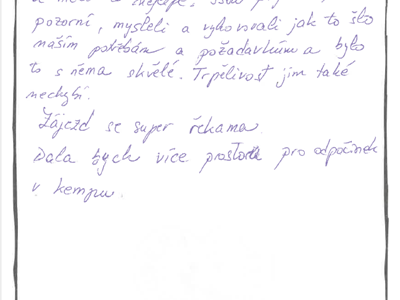 pozorní, mysleli a vyhovovali jak to šlo
našim potřebám a požadavkům a bylo
to s něma skvělé. Trpělivost jim také
nechybí.
Zájezd se super řekama
Dala bych více prostoru pro odpočinek
v kempu.